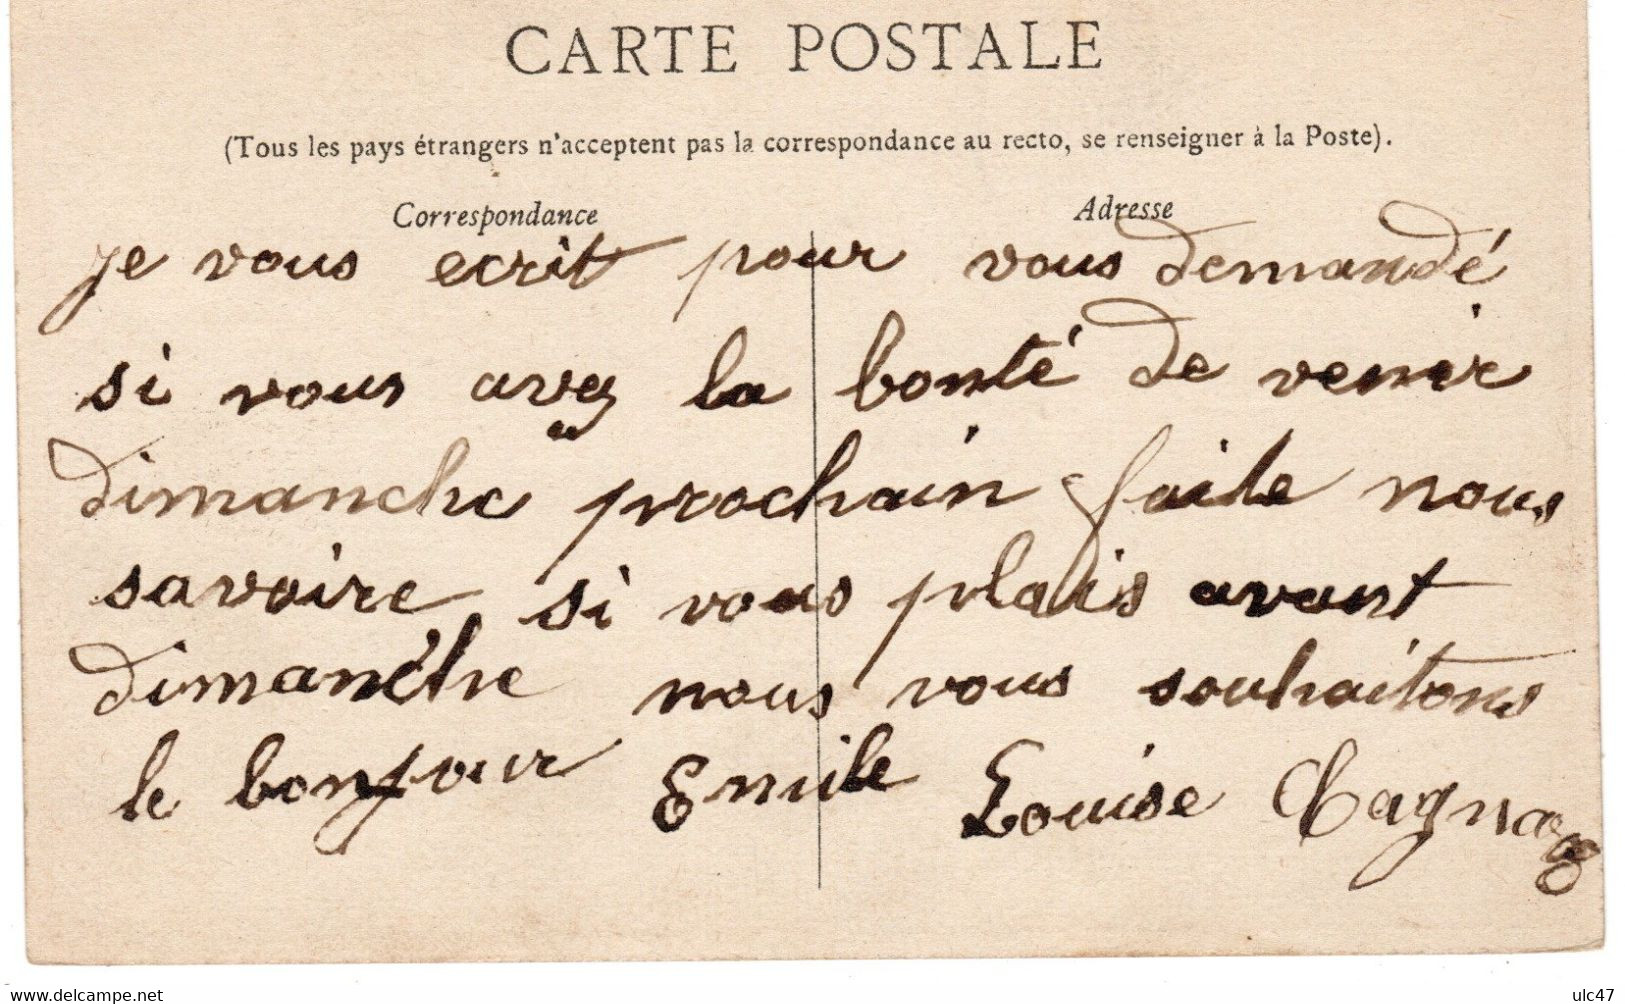 CARTE POSTALE
(Tous les pays étrangers n'acceptent pas la correspondance au recto, se renseigner à la Poste).
Correspondance Adresse
je vous ecrit pour vous demandé
si vous avez la bonté de venir
dimanche prochain faite nous
savoire si vous plais avant
dimanche nous vous souhaitons
le bonjour Emile Louise
www.delcampe.net
ulc47